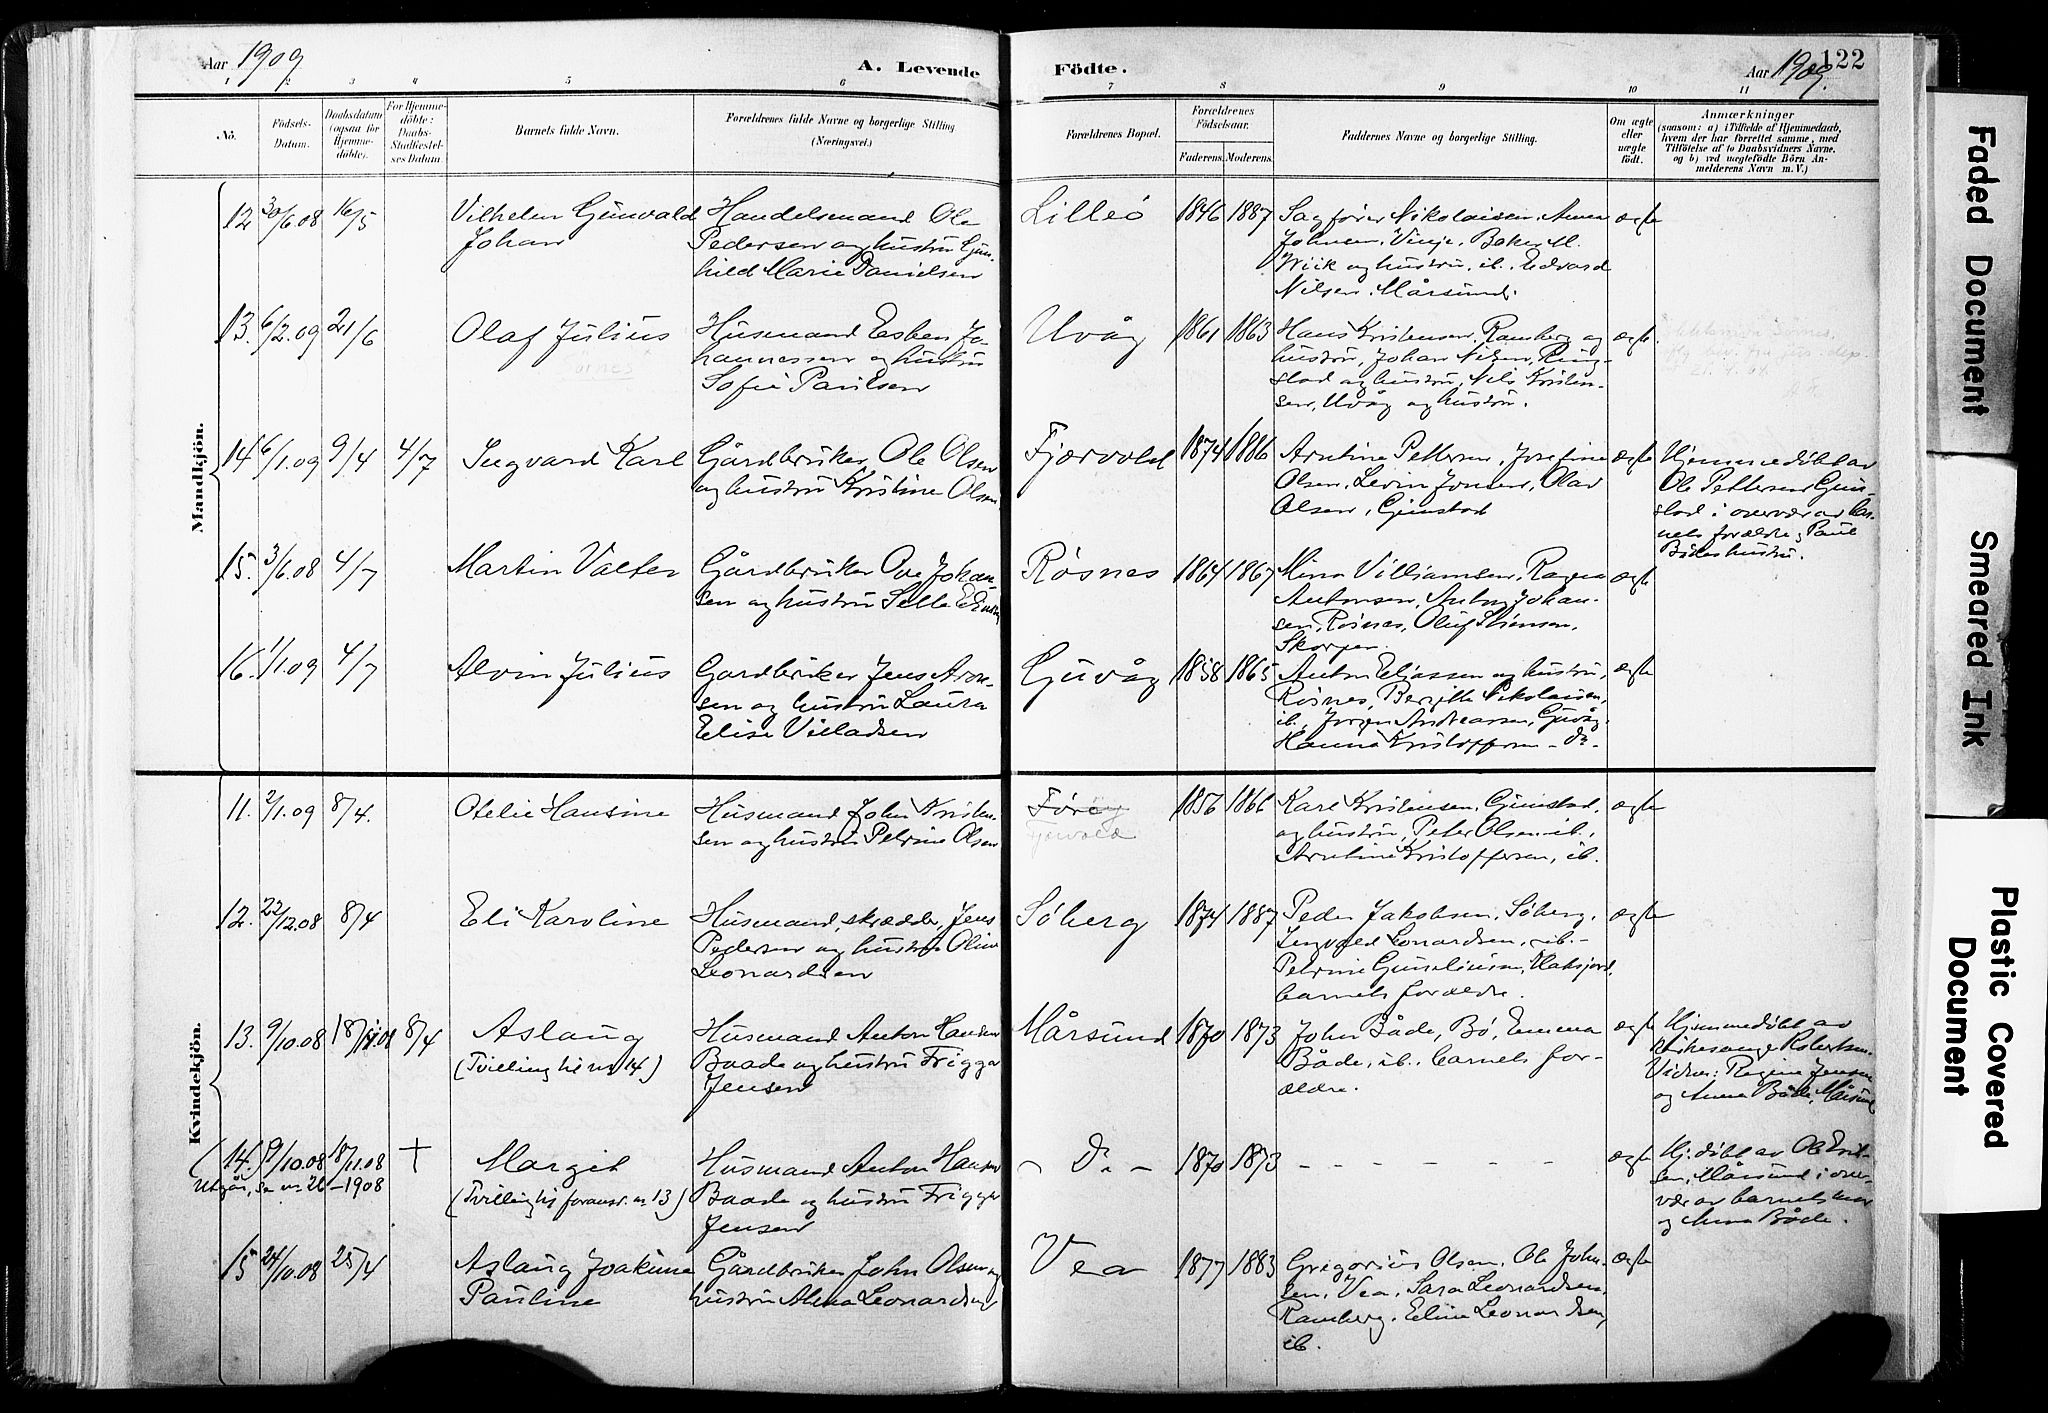 Aar 1909
A. Levende
Födte.
Aar 1909.
122
1 2 3 4 5 6 7 8 9 10 11
No.
Födsels-
Datum.
Daabsdatum
(ogsaa for
Hjemme-
döbte).
For Hjemme-
döbte:
Daabs-
Stadfæstel-
ses Datum.
Barnets fulde Navn.
Forældrenes fulde Navne og borgerlige Stilling
(Næringsvei.)
Forældrenes Bopæl.
Forældrenes
Födselsaar.
Faderens. Moderens.
Faddernes Navne og borgerlige Stilling.
Om ægte
eller
uægte
födt.
Anmærkninger
(saasom: a) i Tilfælde af Hjemmedaab,
hvem der har forrettet samme, med
Tilföielse af to Daabsvidners Navne,
og b) ved uægtefödte Börn An-
melderens Navn m. V.)
Mandkjön.
12 30/6.08 16/5
Vilhelm Gunvald
Johan
Handelsmand Ole
Pedersen og hustru Gun-
hild Marie Danielsen
Lilleö
1846 1887
Sagfører Nikolaisen, Anna
Johnsen, Vinje, Baker M.
Wiik og hustru, ib. Edvard
Nilsen. Mårsund.
ægte
13. 6/2.09 21/6
Olaf Julius
Husmand Esben Jo-
hannessen og hustru
Sofie Paulsen
Uvåg
1861 1863
Hans Kristensen, Ramberg og
hustru, Johan Nilsen, Ring-
stad og hustru, Nils Kristen-
sen, Uvåg og hustru.
ægte.
14 6/1.09 9/4 4/7
Ingvard Karl
Gårdbruker Ole Olsen
og hustru Kristine Olsen
Fjærvold
1874 1886
Arntine Pettersen, Josefine
Olsen, Levin Jonsen, Olav
Olsen, Gimstad
ægte
Hjemmedöbt av
Ole Pettersen Gim-
stad i overvær av bar-
nets forældre, Paul
Bådes hustru.
15. 3/6.08 4/7
Martin Valter
Gårdbruker Ove Johan-
sen og hustru
Rösnes
1864 1867
Mina Villiamsen, Ragna
Antonsen, Anton Johan-
sen, Rösnes, Oluf Sörensen,
Skorpen.
ægte
16. 1/1.09 4/7
Alvin Julius
Gårdbruker Jens Aron-
sen og hustru Laura
Elise Villadsen
Guvåg
1858 1865
Anton Eliassen og hustru,
Rösnes, Bergitte Nikolaisen,
ib., Jörgen Andreassen, Guvåg.
Hanna Kristoffersen – do –
ægte
Kvindekjön.
11. 2/1.09 8/4.
Otelie Hansine
Husmand John Kristen-
sen og hustru Petrine Olsen
Föröy
Fjærvold
1856 1866
Karl Kristensen, Gimstad,
og hustru, Peter Olsen ib.,
Arntine Kristoffersen, ib.
ægte
12. 22/12.08 8/4
Eli Karoline
Husmand, skrædder, Jens
Pedersen og hustru Oline
Leonardsen
Söberg
1874 1887
Peder Jakobsen, Söberg,
Ingvald Leonardsen, ib. –
Petrine
barnets forældre.
ægte
13. 9/10.08 18/11.08 8/4
Aslaug
(Tvilling til nr 14)
Husmand Anton Hansen
Baade og hustru Frigga
Jensen
Mårsund
1870 1873
John Både, Bö, Emma
Både, ib., barnets for-
ældre.
ægte
Hjemmedöbt av
Robertsen.
Vidner: Regine Jensen
og Anna Både, Mårsund
14. 9/10.08 18/11.08 +
Utgår, se nr 26 – 1908
Margit
(Tvilling til foranst. nr 13)
Husmand Anton Hansen
Baade og hustru Frigga
Jensen
– Do –
1870 1873
– – – – – –
ægte
Hj. döbt av Ole Erik-
sen, Mårsund i over-
vær av barnets mor
og Anna Både.
15 24/10.08 25/4
Aslaug Joakime
Pauline
Gårdbruker John Olsen og
hustru Leonardsen
Vea
1877 1883
Gregorius Olsen, Ole John-
sen, Vea, Sara Leonardsen,
Ramberg. Eline Leonardsen,
ib.
ægte
Faded Document
Smeared Ink
Plastic Covered
Document